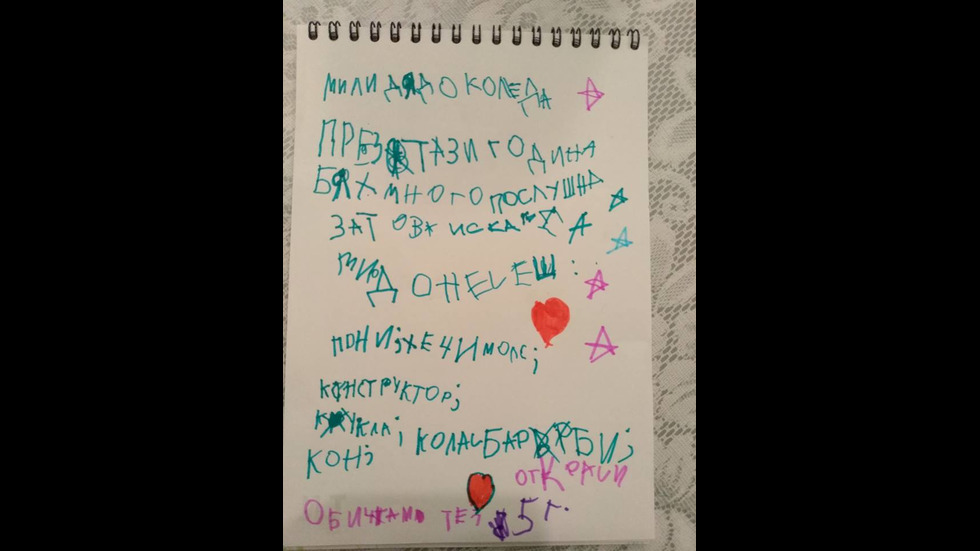 МИЛИ ДЯДО КОЛЕДА
ПРЕЗ ТАЗИ ГОДИНА
БЯХ МНОГО ПОСЛУШНА
ЗАТ ОВА ИСКАМ ДА
МИ ДОНЕСЕШ:
ПОНИ; ХЕЧИМОЛС;
КОНСТРУКТОР;
КУКЛА; КОЛАСБАРБИ;
КОН;
ОТ КРАСИ
ОБИЧАМ ТЕ! 5 г.